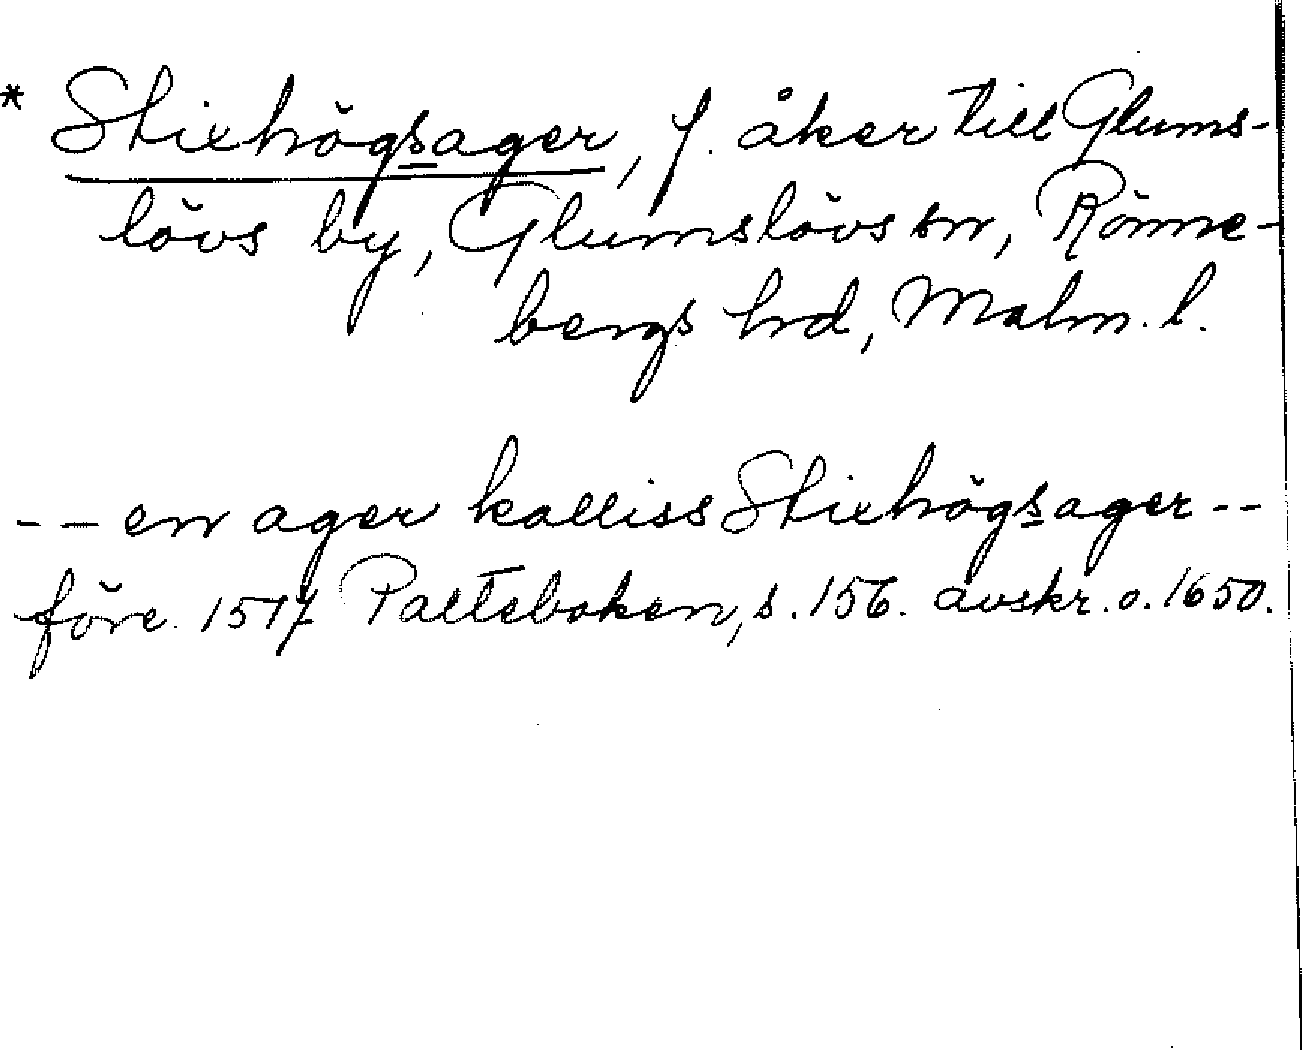 * Stixhögsager, f. åker till Glums-
lövs by, Glumslövs sn, Rönne-
bergs hrd, Malm. l.
-- en ager kalliss Stixhögsager --
före 1517 Palteboken, s. 156. avskr. o. 1650.